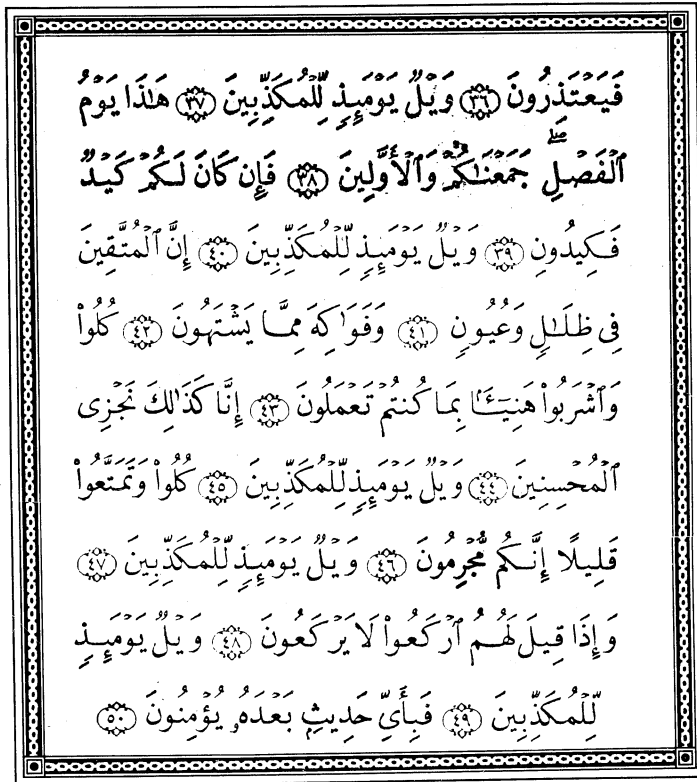 فَيَعْتَذِرُونَ ٣٦ وَيْلٌ يَوْمَئِذٍ لِّلْمُكَذِّبِينَ ٣٧ هَـٰذَا يَوْمُ
ٱلْفَصْلِ ۖ جَمَعْنَـٰكُمْ وَٱلْأَوَّلِينَ ٣٨ فَإِن كَانَ لَكُمْ كَيْدٌ
فَكِيدُونِ ٣٩ وَيْلٌ يَوْمَئِذٍ لِّلْمُكَذِّبِينَ ٤٠ إِنَّ ٱلْمُتَّقِينَ
فِى ظِلَـٰلٍ وَعُيُونٍ ٤١ وَفَوَٰكِهَ مِمَّا يَشْتَهُونَ ٤٢ كُلُوا۟
وَٱشْرَبُوا۟ هَنِيٓـًٔۢا بِمَا كُنتُمْ تَعْمَلُونَ ٤٣ إِنَّا كَذَٰلِكَ نَجْزِى
ٱلْمُحْسِنِينَ ٤٤ وَيْلٌ يَوْمَئِذٍ لِّلْمُكَذِّبِينَ ٤٥ كُلُوا۟ وَتَمَتَّعُوا۟
قَلِيلًا إِنَّكُم مُّجْرِمُونَ ٤٦ وَيْلٌ يَوْمَئِذٍ لِّلْمُكَذِّبِينَ ٤٧
وَإِذَا قِيلَ لَهُمُ ٱرْكَعُوا۟ لَا يَرْكَعُونَ ٤٨ وَيْلٌ يَوْمَئِذٍ
لِّلْمُكَذِّبِينَ ٤٩ فَبِأَىِّ حَدِيثٍۭ بَعْدَهُۥ يُؤْمِنُونَ ٥٠